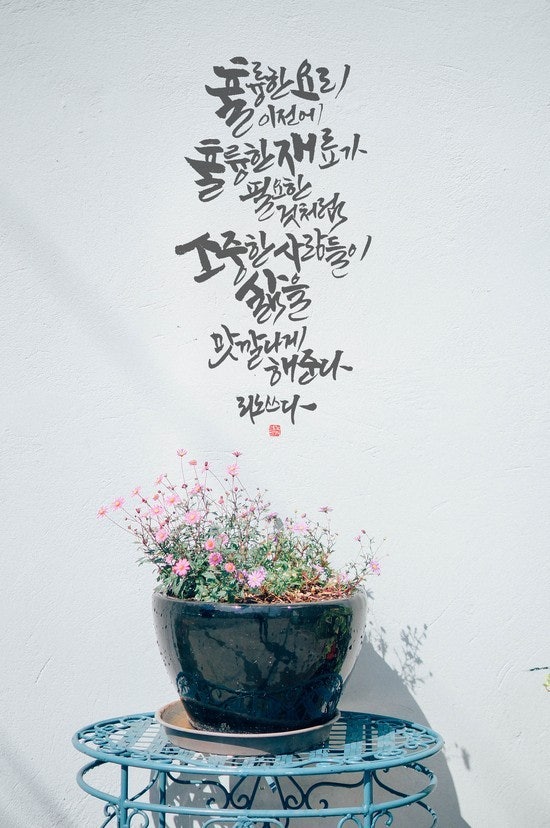 훌륭한 요리
이전에
훌륭한 재료가
필요한
것처럼
소중한 사람들이
삶을
맛깔나게
해준다
리노쓰다